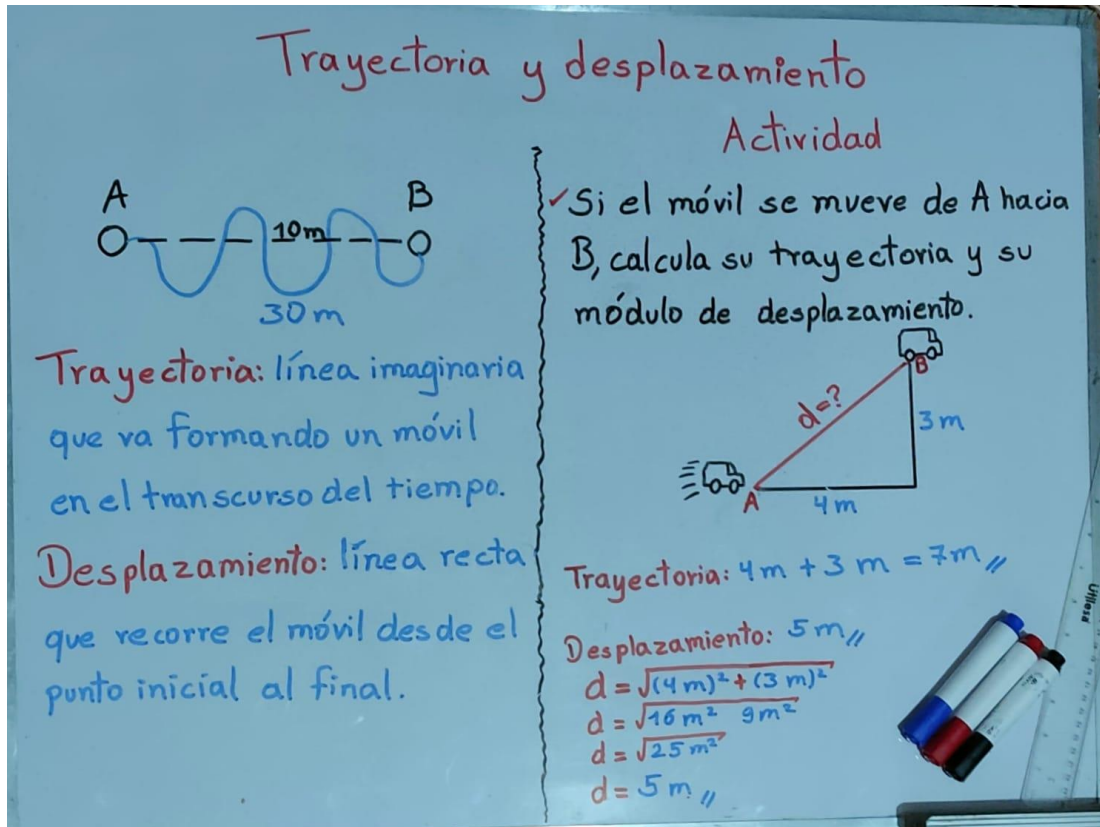 Trayectoria y desplazamiento
A
B
10m
30 m
Trayectoria: línea imaginaria
que va formando un móvil
en el transcurso del tiempo.
Desplazamiento: línea recta
que recorre el móvil desde el
punto inicial al final.
Actividad
✓Si el móvil se mueve de A hacia
B, calcula su trayectoria y su
módulo de desplazamiento.
B
d=?
3 m
A
4 m
Trayectoria: 4 m + 3 m = 7m //
Desplazamiento: 5 m //
d = √(4 m)² + (3 m)²
d = √16 m² 9m²
d = √25 m²
d = 5 m //
Utilesa